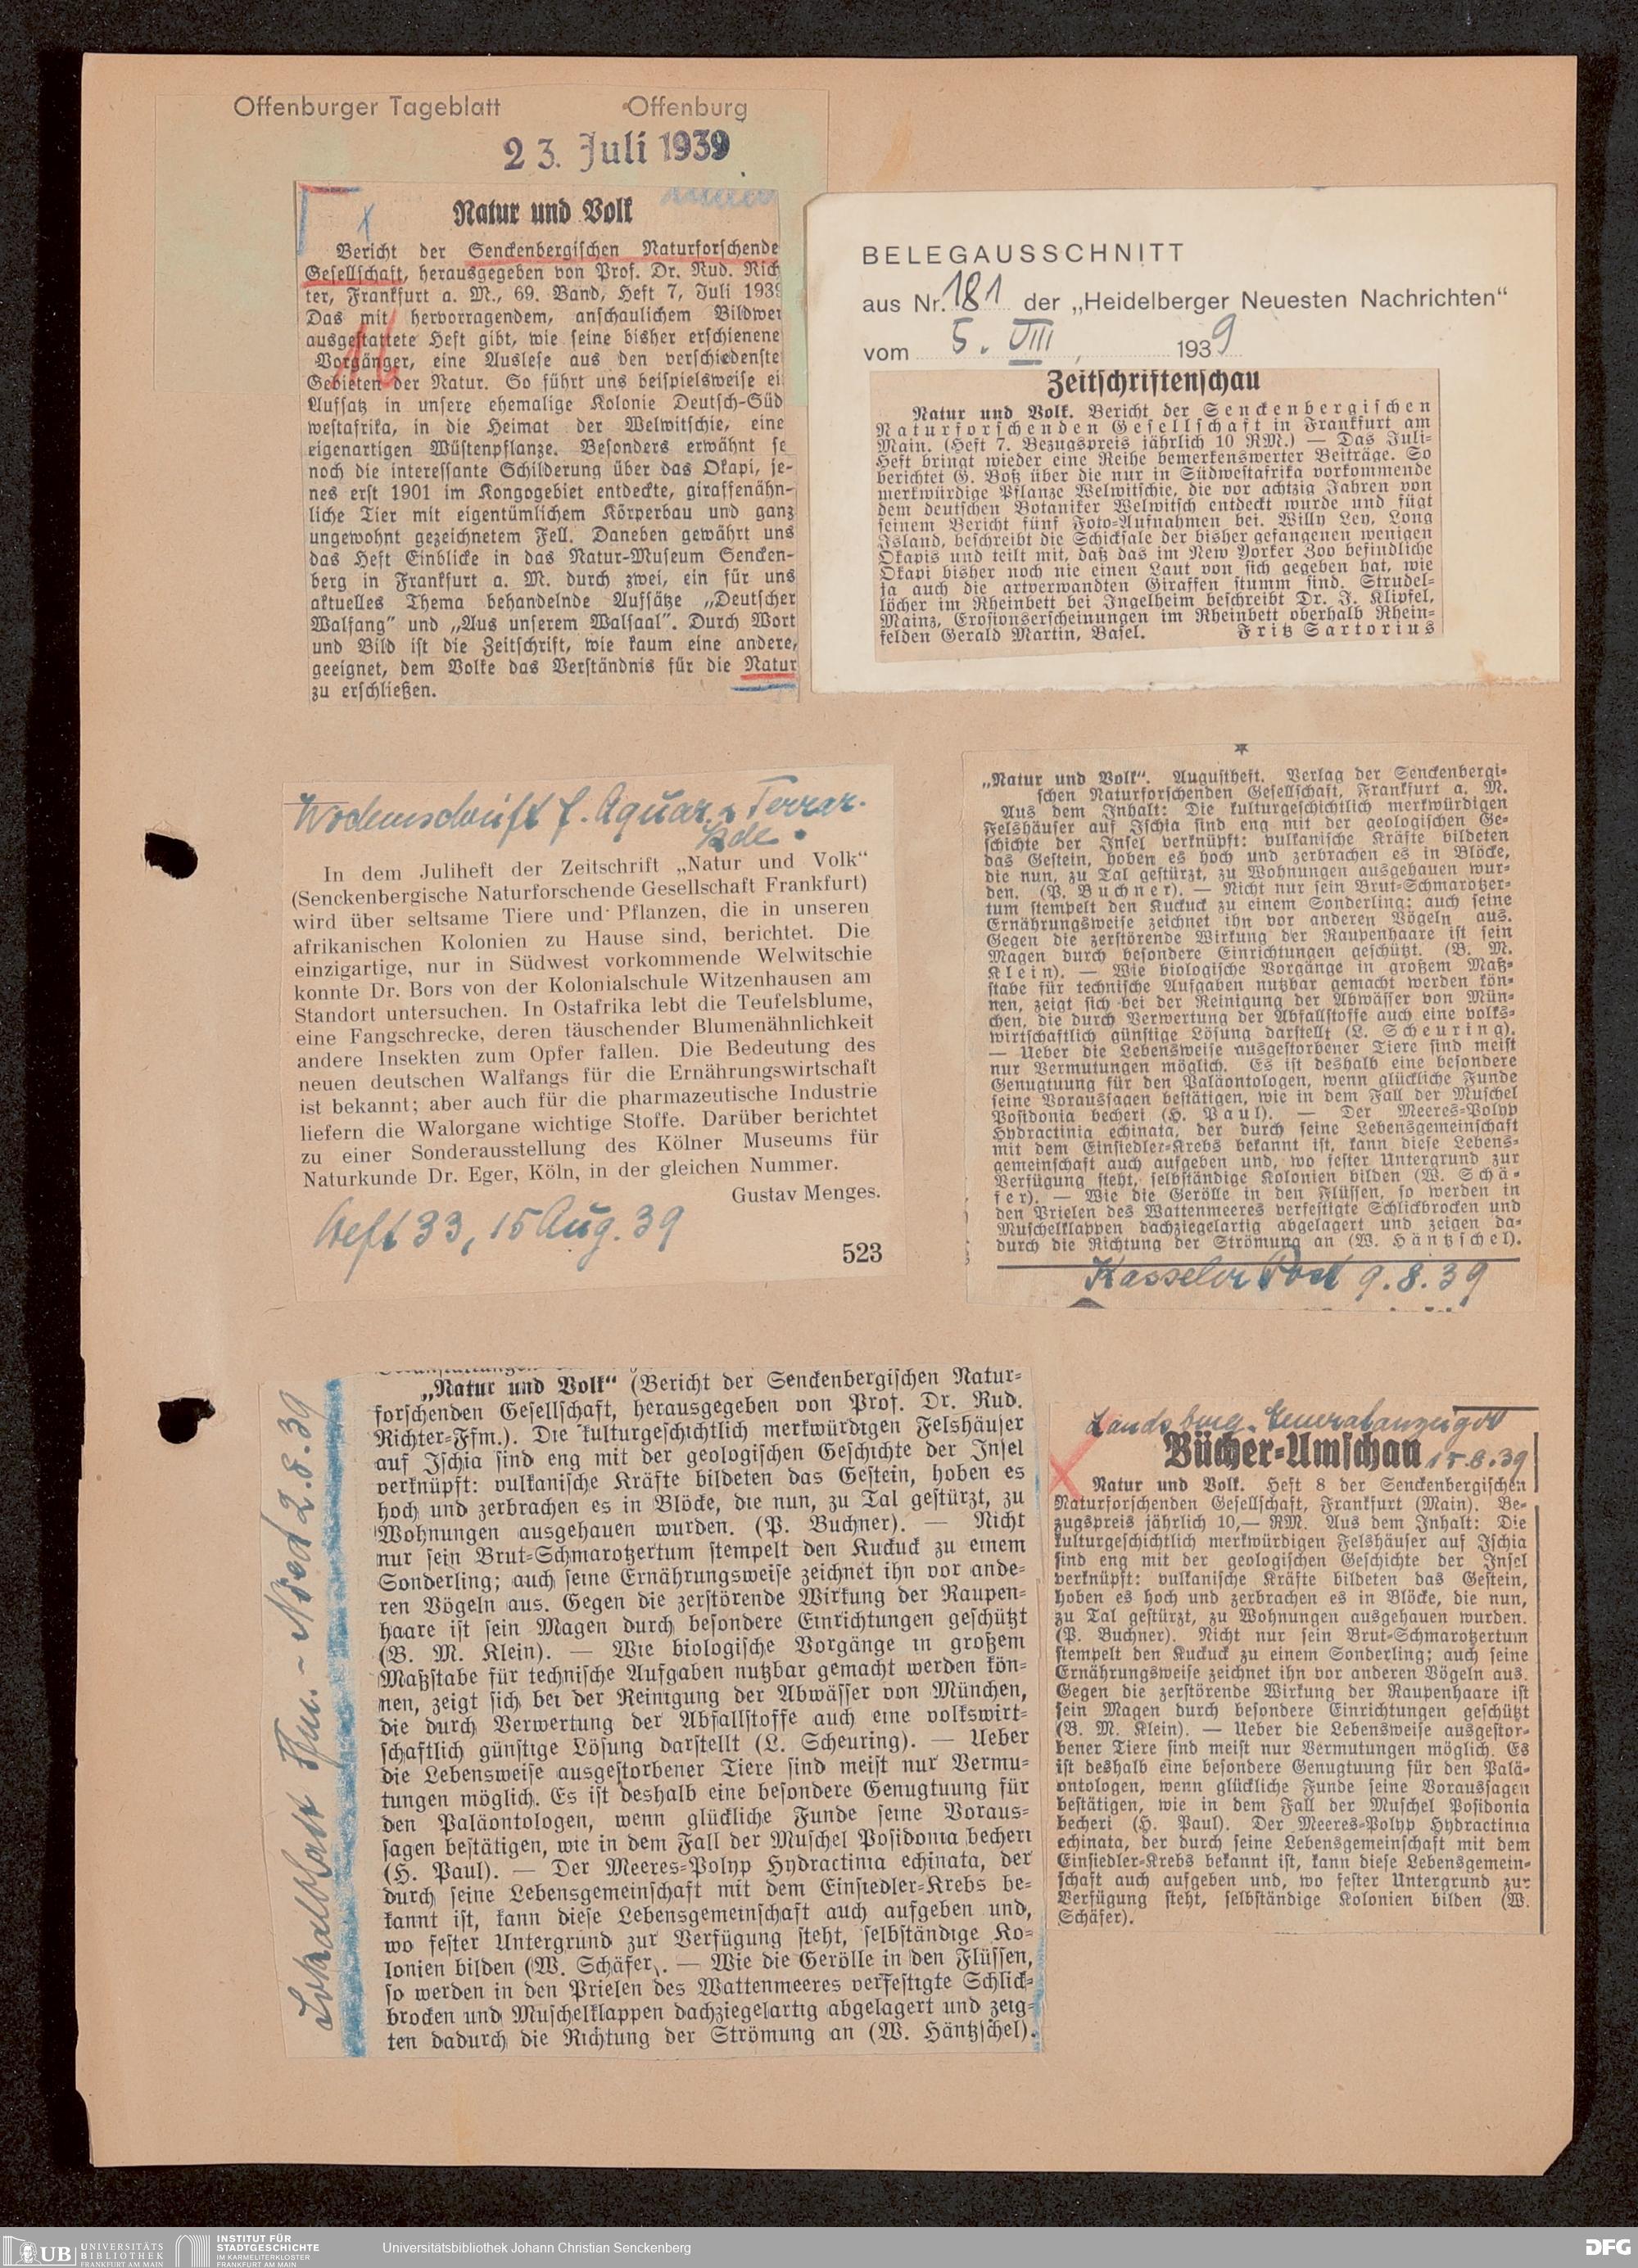 Offenburger Tageblatt Offenburg
23. Juli 1939
Natur und Volk
Bericht der Senckenbergischen Naturforschende
Gesellschaft, herausgegeben von Prof. Dr. Rud. Rich
ter, Frankfurt a. M., 69. Band, Heft 7, Juli 1939
Das mit hervorragendem, anschaulichem Bildwer
ausgestattete Heft gibt, wie seine bisher erschienene
Vorgänger, eine Auslese aus den verschiedenste
Gebieten der Natur. So führt uns beispielsweise ei
Aufsatz in unsere ehemalige Kolonie Deutsch-Süd
westafrika, in die Heimat der Welwitschie, eine
eigenartigen Wüstenpflanze. Besonders erwähnt se
noch die interessante Schilderung über das Okapi, je-
nes erst 1901 im Kongogebiet entdeckte, giraffenähn-
liche Tier mit eigentümlichem Körperbau und ganz
ungewohnt gezeichnetem Fell. Daneben gewährt uns
das Heft Einblicke in das Natur-Museum Sencken-
berg in Frankfurt a. M. durch zwei, ein für uns
aktuelles Thema behandelnde Aufsätze „Deutscher
Walfang" und „Aus unserem Walsaal". Durch Wort
und Bild ist die Zeitschrift, wie kaum eine andere,
geeignet, dem Volke das Verständnis für die Natur
zu erschließen.
BELEGAUSSCHNITT
aus Nr. 181 der „Heidelberger Neuesten Nachrichten"
vom 5. VIII, 1939
Zeitschriftenschau
Natur und Volk. Bericht der Senckenbergischen
Naturforschenden Gesellschaft in Frankfurt am
Main. (Heft 7. Bezugspreis jährlich 10 RM.) — Das Juli-
Heft bringt wieder eine Reihe bemerkenswerter Beiträge. So
berichtet G. Botz über die nur in Südwestafrika vorkommende
merkwürdige Pflanze Welwitschie, die vor achtzig Jahren von
dem deutschen Botaniker Welwitsch entdeckt wurde und fügt
seinem Bericht fünf Foto-Aufnahmen bei. Willy Ley, Long
Island, beschreibt die Schicksale der bisher gefangenen wenigen
Okapis und teilt mit, daß das im New Yorker Zoo befindliche
Okapi bisher noch nie einen Laut von sich gegeben hat, wie
ja auch die artverwandten Giraffen stumm sind. Strudel-
löcher im Rheinbett bei Ingelheim beschreibt Dr. J. Klipfel,
Mainz, Erosionserscheinungen im Rheinbett oberhalb Rhein-
felden Gerald Martin, Basel. Fritz Sartorius
Wochenschrift f. Aquar. u Terrar.
kde.
In dem Juliheft der Zeitschrift „Natur und Volk"
(Senckenbergische Naturforschende Gesellschaft Frankfurt)
wird über seltsame Tiere und Pflanzen, die in unseren
afrikanischen Kolonien zu Hause sind, berichtet. Die
einzigartige, nur in Südwest vorkommende Welwitschie
konnte Dr. Bors von der Kolonialschule Witzenhausen am
Standort untersuchen. In Ostafrika lebt die Teufelsblume,
eine Fangschrecke, deren täuschender Blumenähnlichkeit
andere Insekten zum Opfer fallen. Die Bedeutung des
neuen deutschen Walfangs für die Ernährungswirtschaft
ist bekannt; aber auch für die pharmazeutische Industrie
liefern die Walorgane wichtige Stoffe. Darüber berichtet
zu einer Sonderausstellung des Kölner Museums für
Naturkunde Dr. Eger, Köln, in der gleichen Nummer.
Gustav Menges.
Heft 33, 15 Aug. 39
523
„Natur und Volk". Augustheft. Verlag der Senckenbergi-
schen Naturforschenden Gesellschaft, Frankfurt a. M.
Aus dem Inhalt: Die kulturgeschichtlich merkwürdigen
Felshäuser auf Ischia sind eng mit der geologischen Ge-
schichte der Insel verknüpft: vulkanische Kräfte bildeten
das Gestein, hoben es hoch und zerbrachen es in Blöcke,
die nun, zu Tal gestürzt, zu Wohnungen ausgehauen wur-
den. (P. Buchner). — Nicht nur sein Brut-Schmarotzer-
tum stempelt den Kuckuck zu einem Sonderling; auch seine
Ernährungsweise zeichnet ihn vor anderen Vögeln aus.
Gegen die zerstörende Wirkung der Raupenhaare ist sein
Magen durch besondere Einrichtungen geschützt. (B. M.
Klein). — Wie biologische Vorgänge in großem Maß-
stabe für technische Aufgaben nutzbar gemacht werden kön-
nen, zeigt sich bei der Reinigung der Abwässer von Mün-
chen, die durch Verwertung der Abfallstoffe auch eine volks-
wirtschaftlich günstige Lösung darstellt (L. Scheuring).
— Ueber die Lebensweise ausgestorbener Tiere sind meist
nur Vermutungen möglich. Es ist deshalb eine besondere
Genugtuung für den Paläontologen, wenn glückliche Funde
seine Voraussagen bestätigen, wie in dem Fall der Muschel
Posidonia becheri (H. Paul). — Der Meeres-Polyp
Hydractinia echinata, der durch seine Lebensgemeinschaft
mit dem Einsiedler-Krebs bekannt ist, kann diese Lebens-
gemeinschaft auch aufgeben und, wo fester Untergrund zur
Verfügung steht, selbständige Kolonien bilden (W. Schä-
fer). — Wie die Gerölle in den Flüssen, so werden in
den Prielen des Wattenmeeres verfestigte Schlickbrocken und
Muschelklappen dachziegelartig abgelagert und zeigen da-
durch die Richtung der Strömung an (W. Häntzschel).
Kasseler Post 9.8.39
Lokalblatt Ffm.- Nied 2.8.39
„Natur und Volk" (Bericht der Senckenbergischen Natur-
forschenden Gesellschaft, herausgegeben von Prof. Dr. Rud.
Richter-Ffm.). Die kulturgeschichtlich merkwürdigen Felshäuser
auf Ischia sind eng mit der geologischen Geschichte der Insel
verknüpft: vulkanische Kräfte bildeten das Gestein, hoben es
hoch und zerbrachen es in Blöcke, die nun, zu Tal gestürzt, zu
Wohnungen ausgehauen wurden. (P. Buchner). — Nicht
nur sein Brut-Schmarotzertum stempelt den Kuckuck zu einem
Sonderling; auch seine Ernährungsweise zeichnet ihn vor ande-
ren Vögeln aus. Gegen die zerstörende Wirkung der Raupen-
haare ist sein Magen durch besondere Einrichtungen geschützt
(B. M. Klein). — Wie biologische Vorgänge in großem
Maßstabe für technische Aufgaben nutzbar gemacht werden kön-
nen, zeigt sich bei der Reinigung der Abwässer von München,
die durch Verwertung der Abfallstoffe auch eine volkswirt-
schaftlich günstige Lösung darstellt (L. Scheuring). — Ueber
die Lebensweise ausgestorbener Tiere sind meist nur Vermu-
tungen möglich. Es ist deshalb eine besondere Genugtuung für
den Paläontologen, wenn glückliche Funde seine Voraus-
sagen bestätigen, wie in dem Fall der Muschel Posidonia becheri
(H. Paul). — Der Meeres-Polyp Hydractinia echinata, der
durch seine Lebensgemeinschaft mit dem Einsiedler-Krebs be-
kannt ist, kann diese Lebensgemeinschaft auch aufgeben und,
wo fester Untergrund zur Verfügung steht, selbständige Ko-
lonien bilden (W. Schäfer). — Wie die Gerölle in den Flüssen,
so werden in den Prielen des Wattenmeeres verfestigte Schlick-
brocken und Muschelklappen dachziegelartig abgelagert und zeig-
ten dadurch die Richtung der Strömung an (W. Häntzschel).
Landsberg. Generalanzeiger
Bücher-Umschau 15.8.39
Natur und Volk. Heft 8 der Senckenbergischen
Naturforschenden Gesellschaft, Frankfurt (Main). Be-
zugspreis jährlich 10,— RM. Aus dem Inhalt: Die
kulturgeschichtlich merkwürdigen Felshäuser auf Ischia
sind eng mit der geologischen Geschichte der Insel
verknüpft: vulkanische Kräfte bildeten das Gestein,
hoben es hoch und zerbrachen es in Blöcke, die nun,
zu Tal gestürzt, zu Wohnungen ausgehauen wurden.
(P. Buchner). Nicht nur sein Brut-Schmarotzertum
stempelt den Kuckuck zu einem Sonderling; auch seine
Ernährungsweise zeichnet ihn vor anderen Vögeln aus.
Gegen die zerstörende Wirkung der Raupenhaare ist
sein Magen durch besondere Einrichtungen geschützt
(B. M. Klein). — Ueber die Lebensweise ausgestor-
bener Tiere sind meist nur Vermutungen möglich. Es
ist deshalb eine besondere Genugtuung für den Palä-
ontologen, wenn glückliche Funde seine Voraussagen
bestätigen, wie in dem Fall der Muschel Posidonia
becheri (H. Paul). Der Meeres-Polyp Hydractinia
echinata, der durch seine Lebensgemeinschaft mit dem
Einsiedler-Krebs bekannt ist, kann diese Lebensgemein-
schaft auch aufgeben und, wo fester Untergrund zur
Verfügung steht, selbständige Kolonien bilden (W.
Schäfer).
UB UNIVERSITÄTS
BIBLIOTHEK
FRANKFURT AM MAIN
INSTITUT FÜR
STADTGESCHICHTE
IM KARMELITERKLOSTER
FRANKFURT AM MAIN
Universitätsbibliothek Johann Christian Senckenberg
DFG